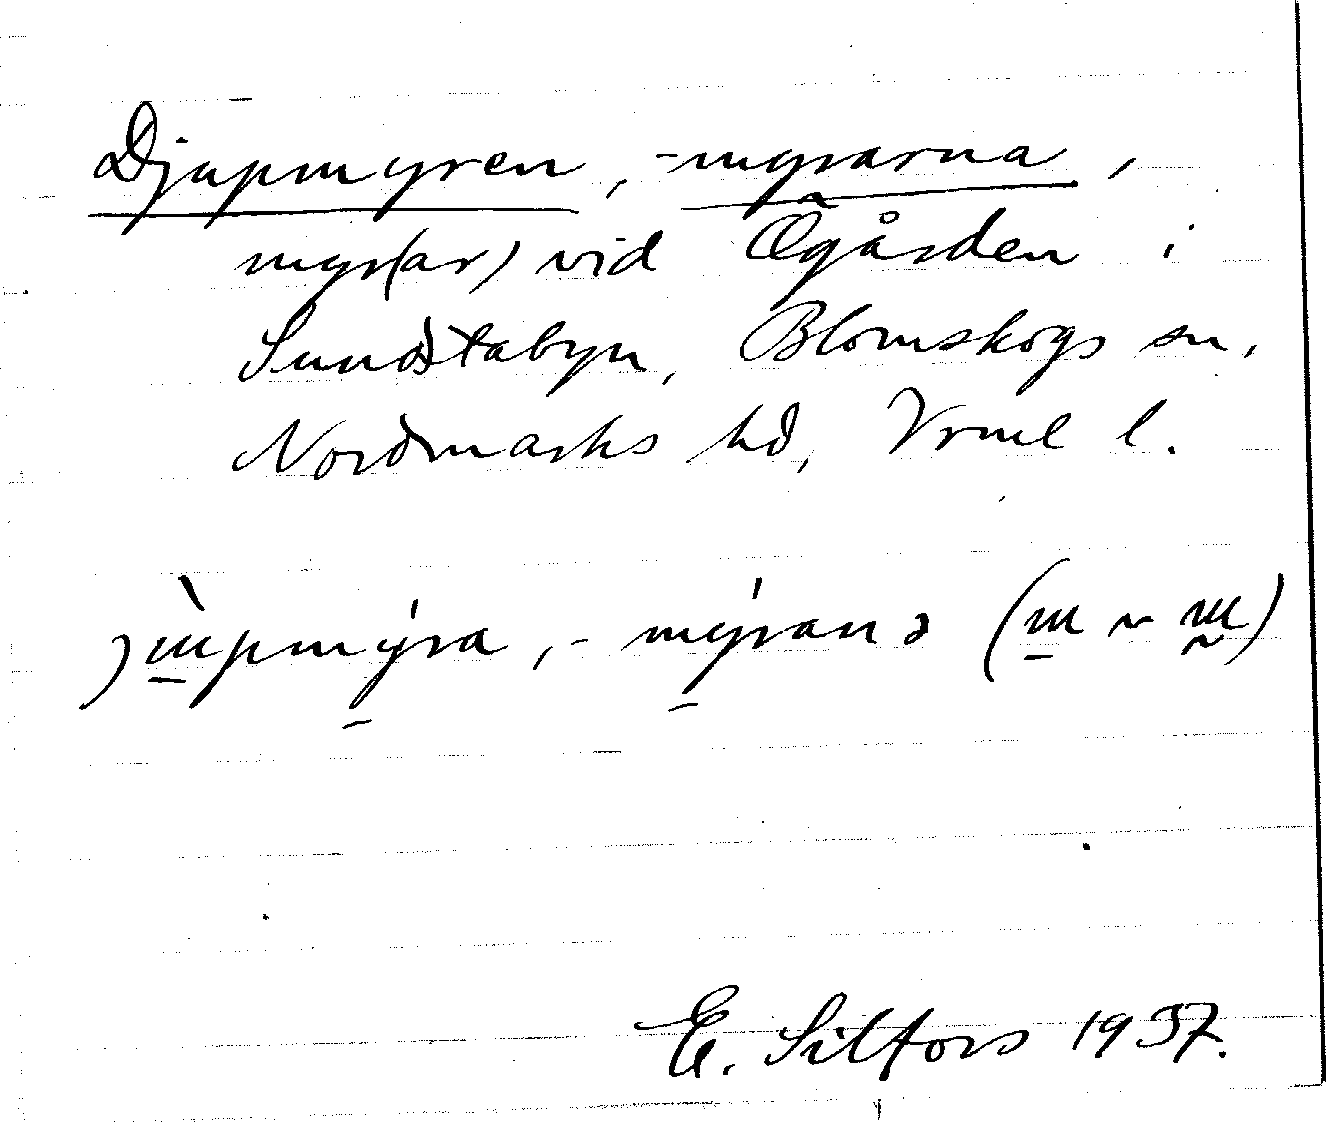 Djupmyren, -myrarna,
myr(ar) vid Ögården i
Sundstabyn, Blomskogs sn,
Nordmarks hd, Vrml l.
E. Silfors 1937.